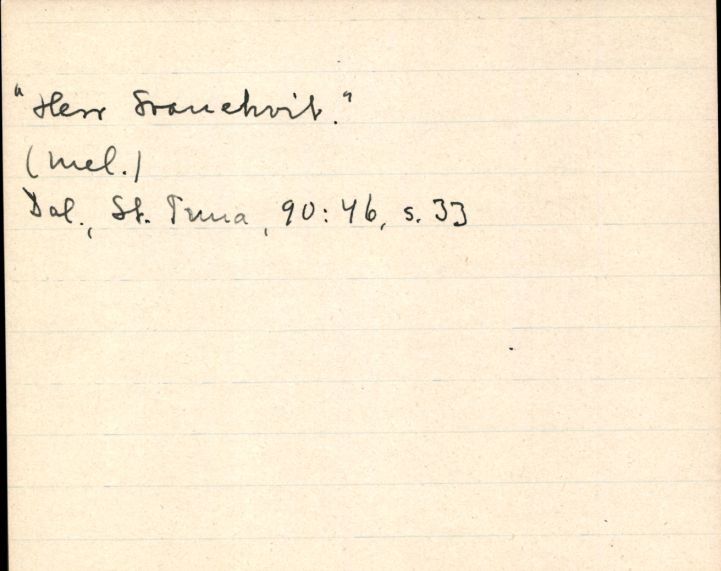 "Herr Svanehvit."
(mel.)
Dal., St. Tuna, 90:46, s. 33